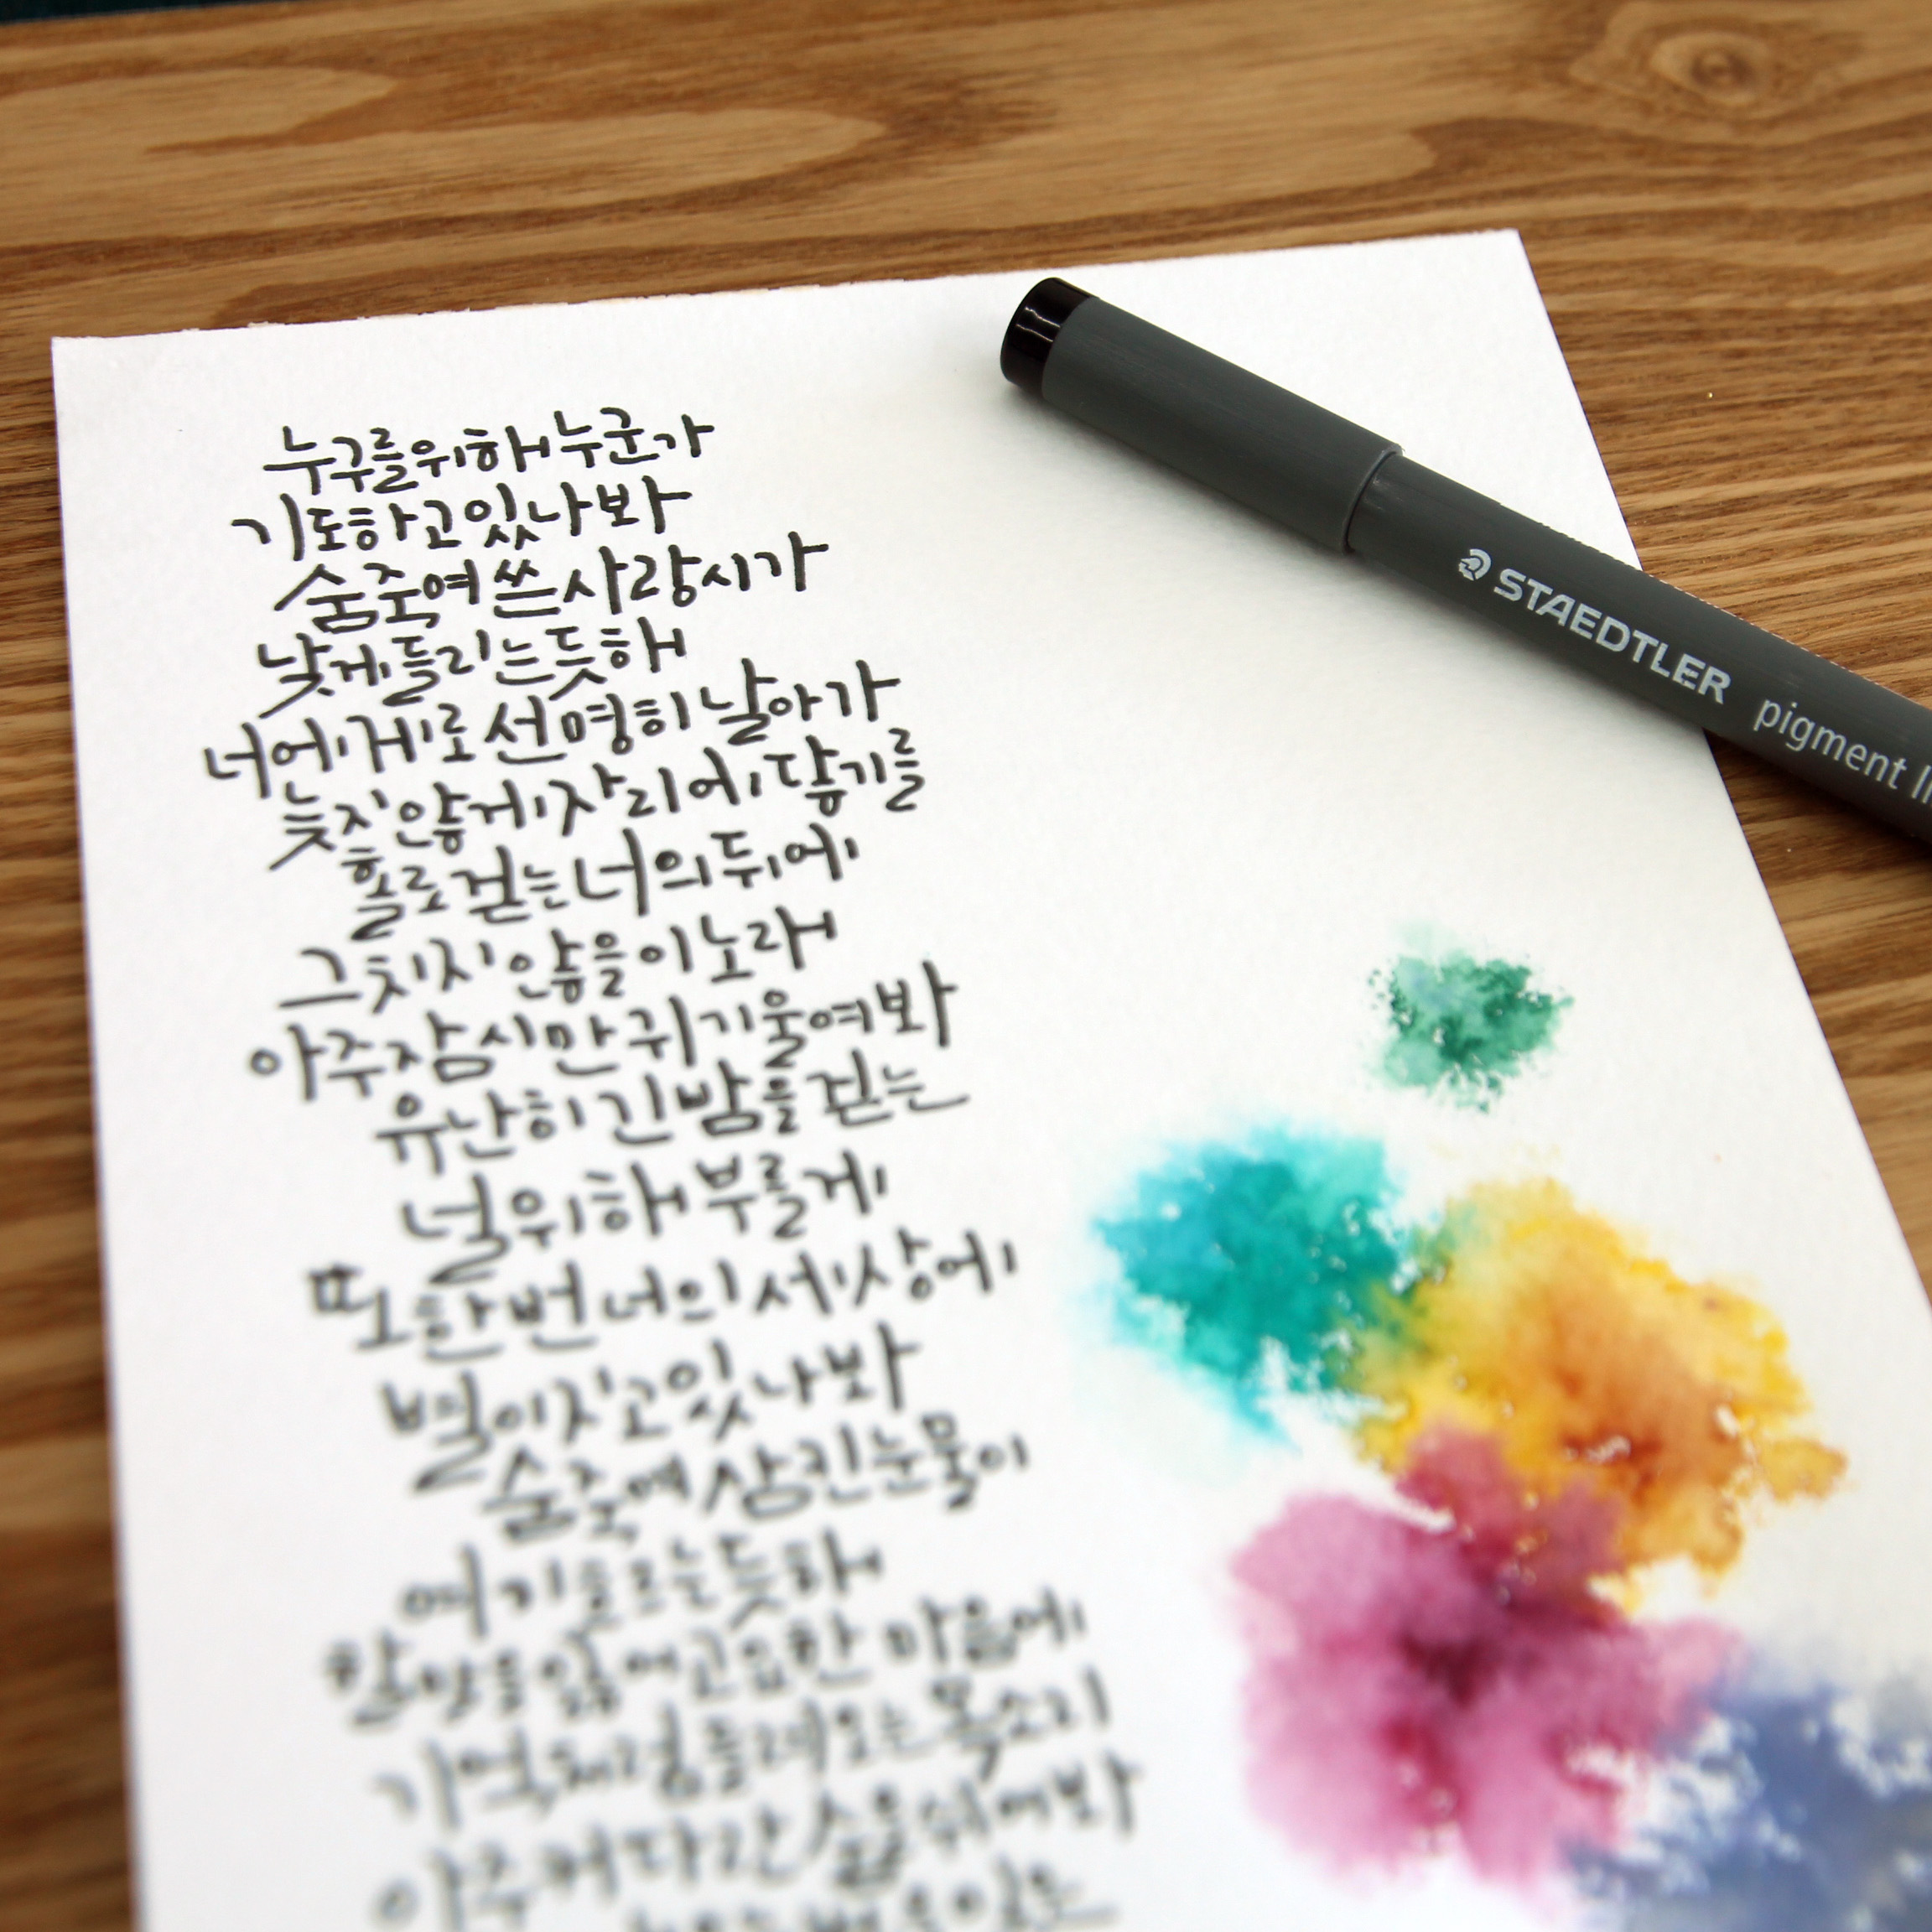 누구를위해누군가
기도하고있나봐
숨죽여쓴사랑시가
낮게들리는듯해
너에게로선명히날아가
늦지않게자리에닿기를
홀로걷는너의뒤에
그치지않을이노래
아주잠시만귀기울여봐
유난히긴밤을걷는
널위해부를게
또한번너의세상에
별이지고있나봐
숨죽여삼킨눈물이
여기흐르는듯해
할말을잃어고요한마음에
기억처럼들려오는목소리
아주커다란숨을쉬어봐
STAEDTLER
pigment